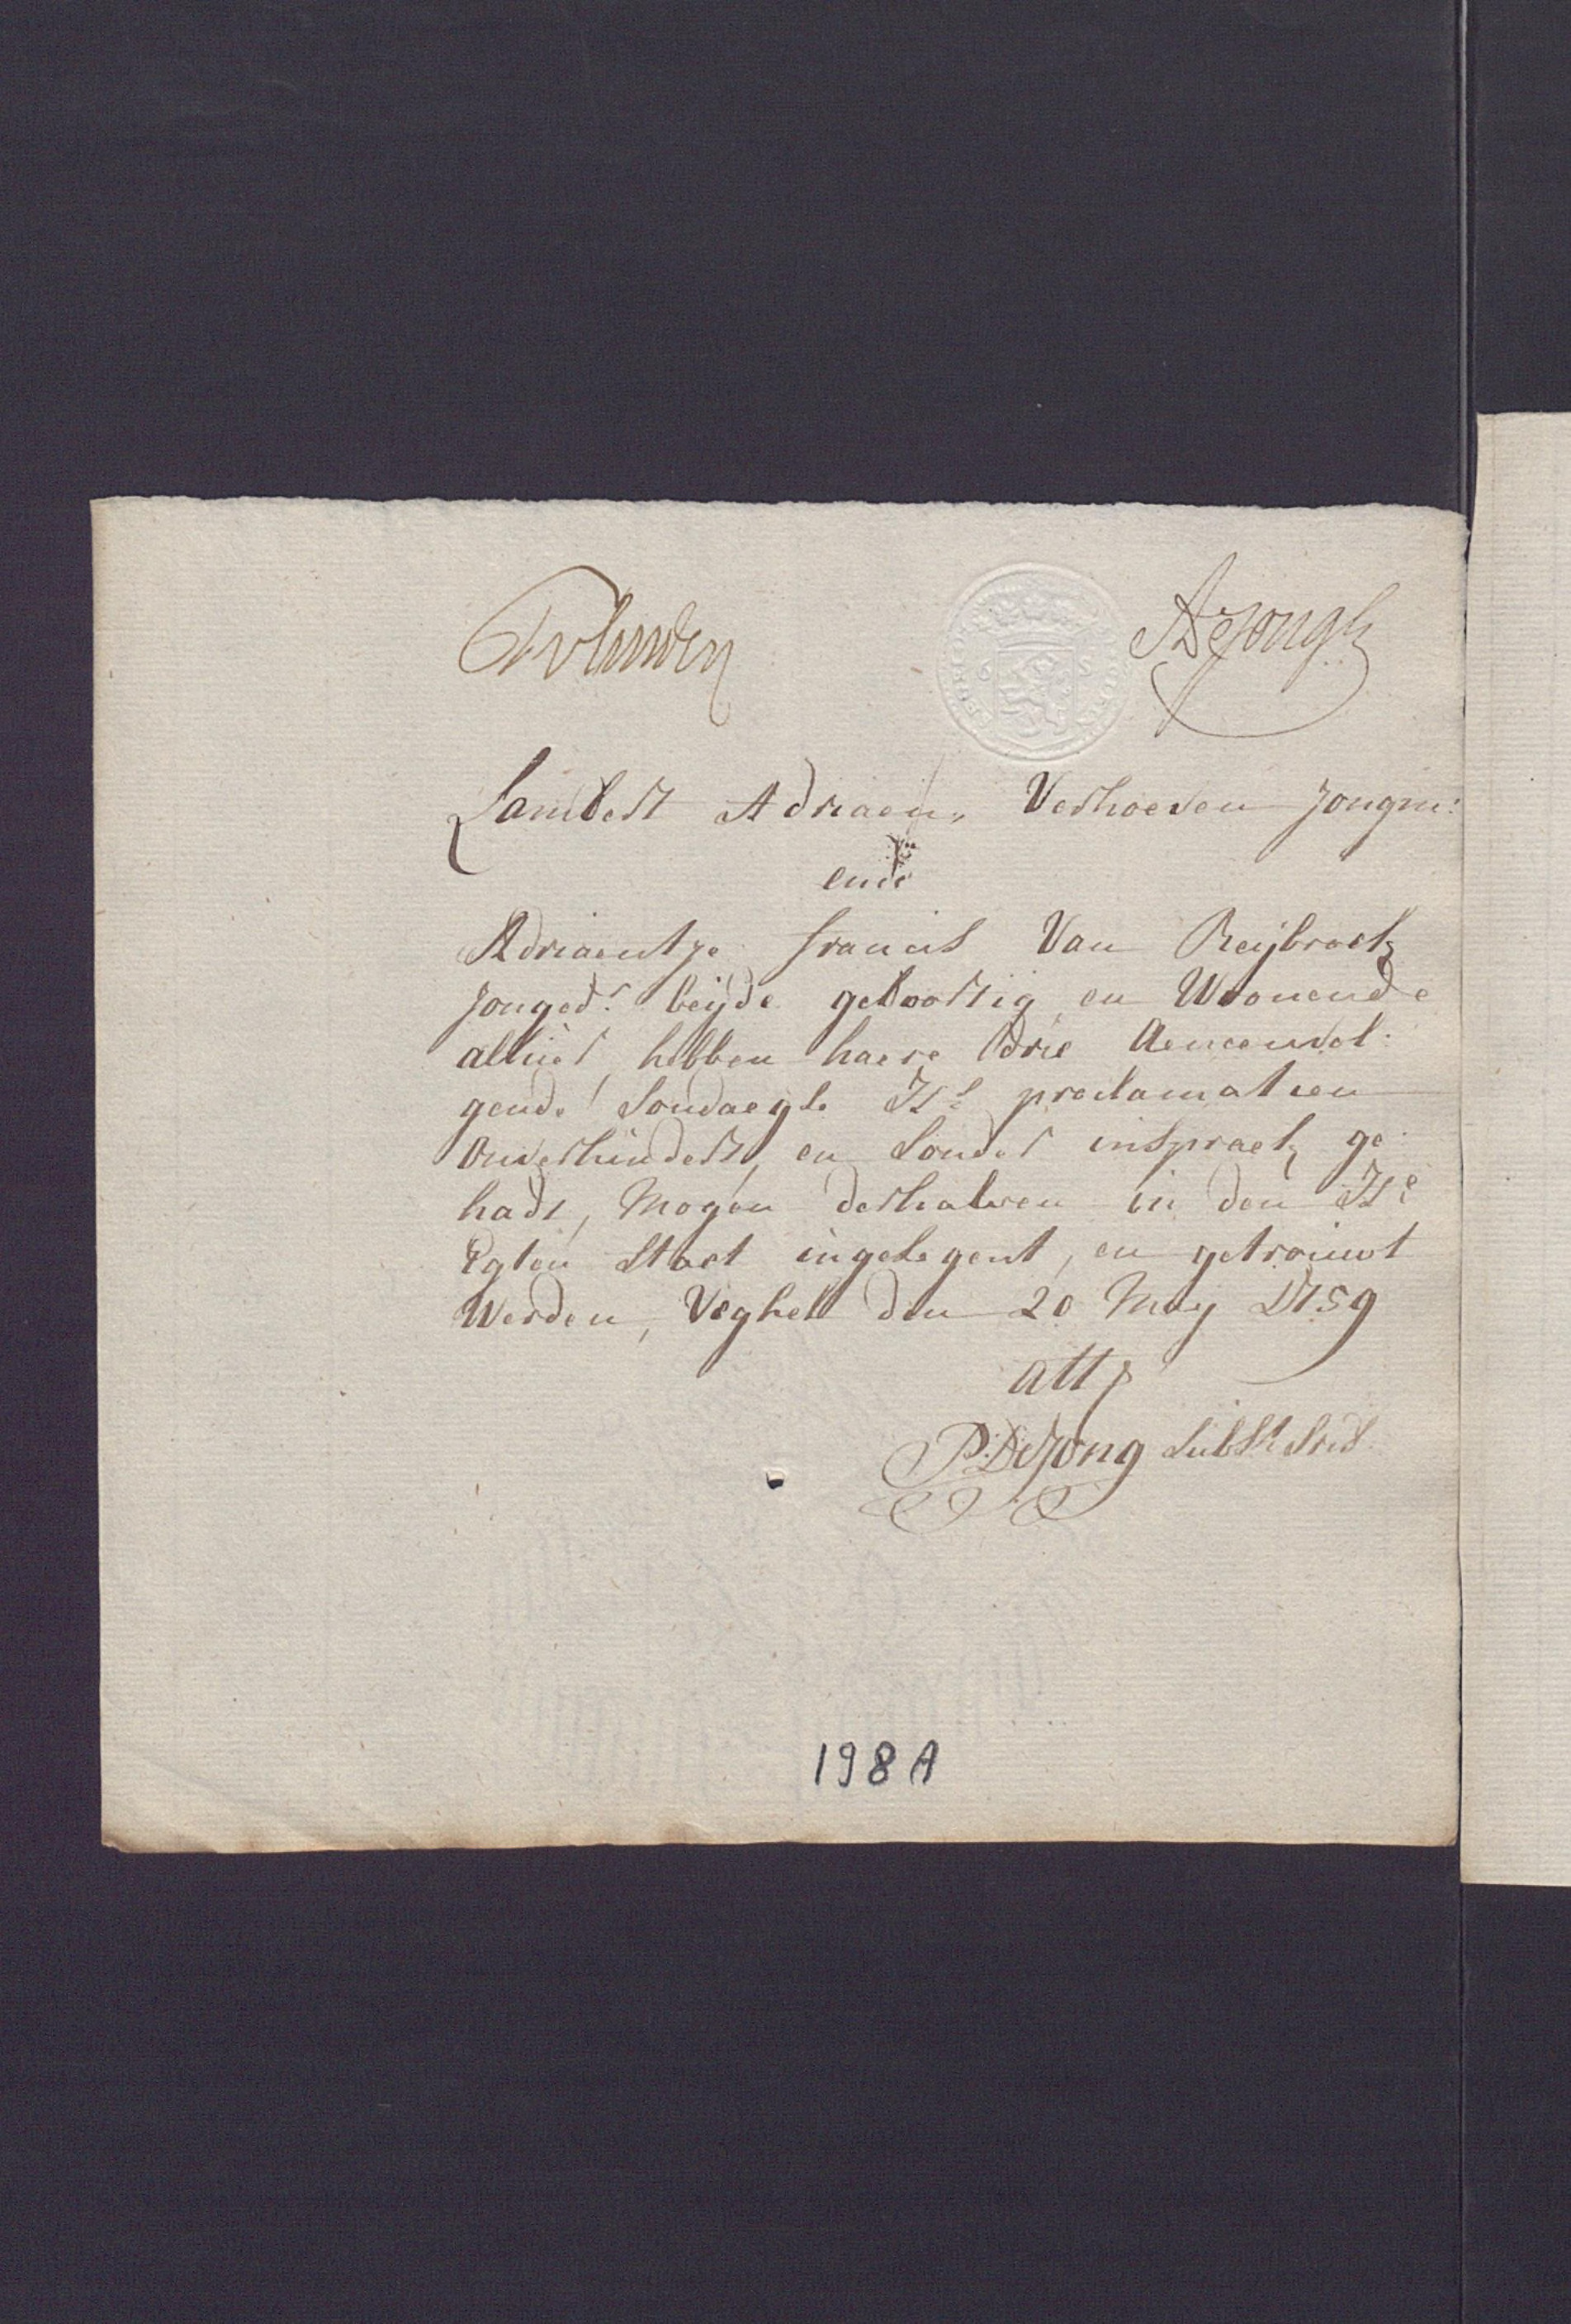 ADeJongh
Lambert Adriaen Verhoeven Jongm:
ende
Adriaentje francis Van Reijbroek
Jonged: beijde geboortig en Woonende
alhier, hebben haere drie Aeneenvol:
gende Sondaegse proclamatien
Onverhindert, en Sonder inspraek ge
hadt, Mogen derhalven in den
Egten Staet ingesegent, en getrouwt
Werden, Veghel den 20 Meij 1759
att
P: DeJong Subst Secrs
198A